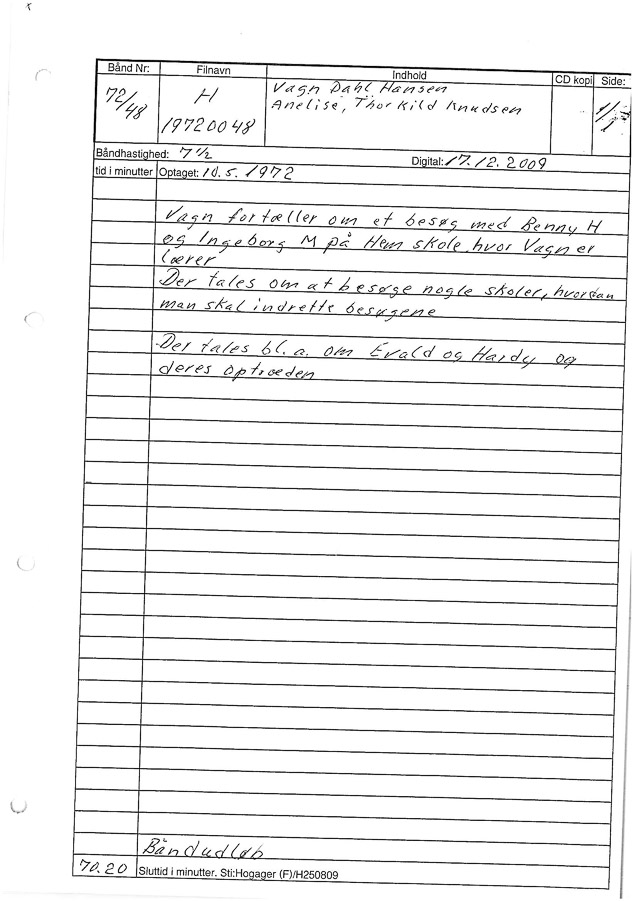 Bånd Nr: Filnavn Indhold CD kopi Side:
72/48 H Vagn Dahl Hansen 1/1
19720048 Anelise, Thorkild Knudsen
Båndhastighed: 7½ Digital: 17.12.2009
tid i minutter Optaget: 10.5.1972
Vagn fortæller om et besøg med Benny H
og Ingeborg M på Hem skole, hvor Vagn er
lærer
Der tales om at besøge nogle skoler, hvordan
man skal indrette besøgene
Der tales bl.a. om Evald og Hardy og
deres optræden
Båndudløb
70.20 Sluttid i minutter. Sti:Hogager (F)/H250809